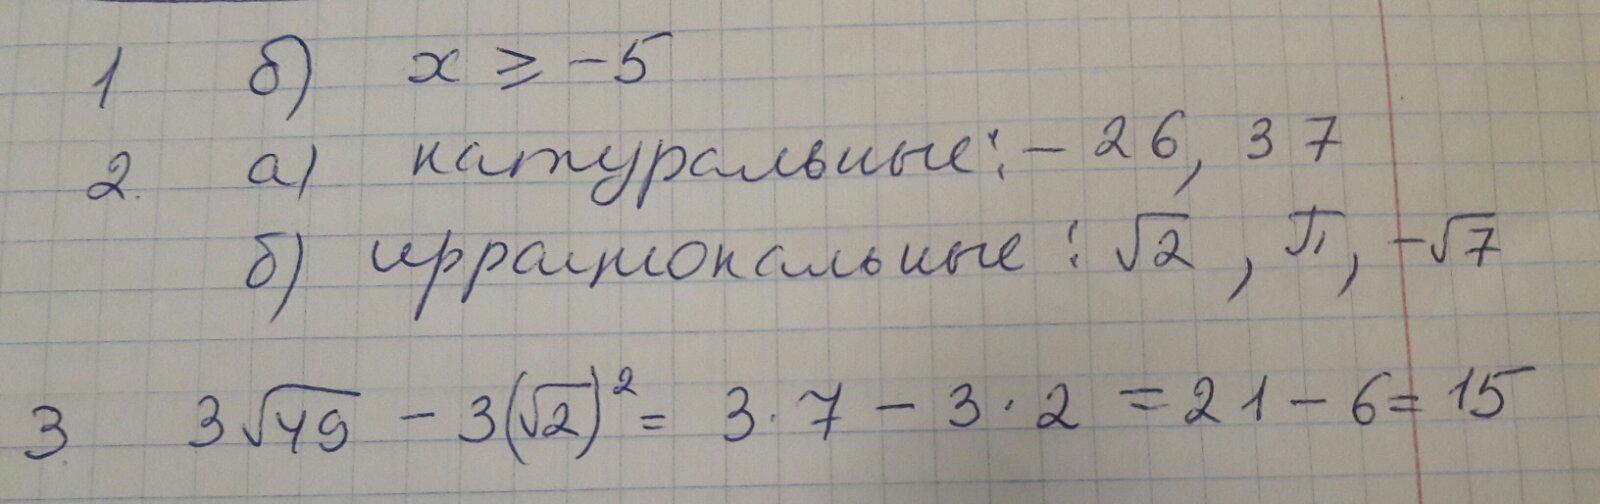 1 б) x ≥ -5
2. а) натуральные: - 26, 37
б) иррациональные: √2, π, -√7
3 3√49 - 3(√2)² = 3·7 - 3·2 = 21 - 6 = 15